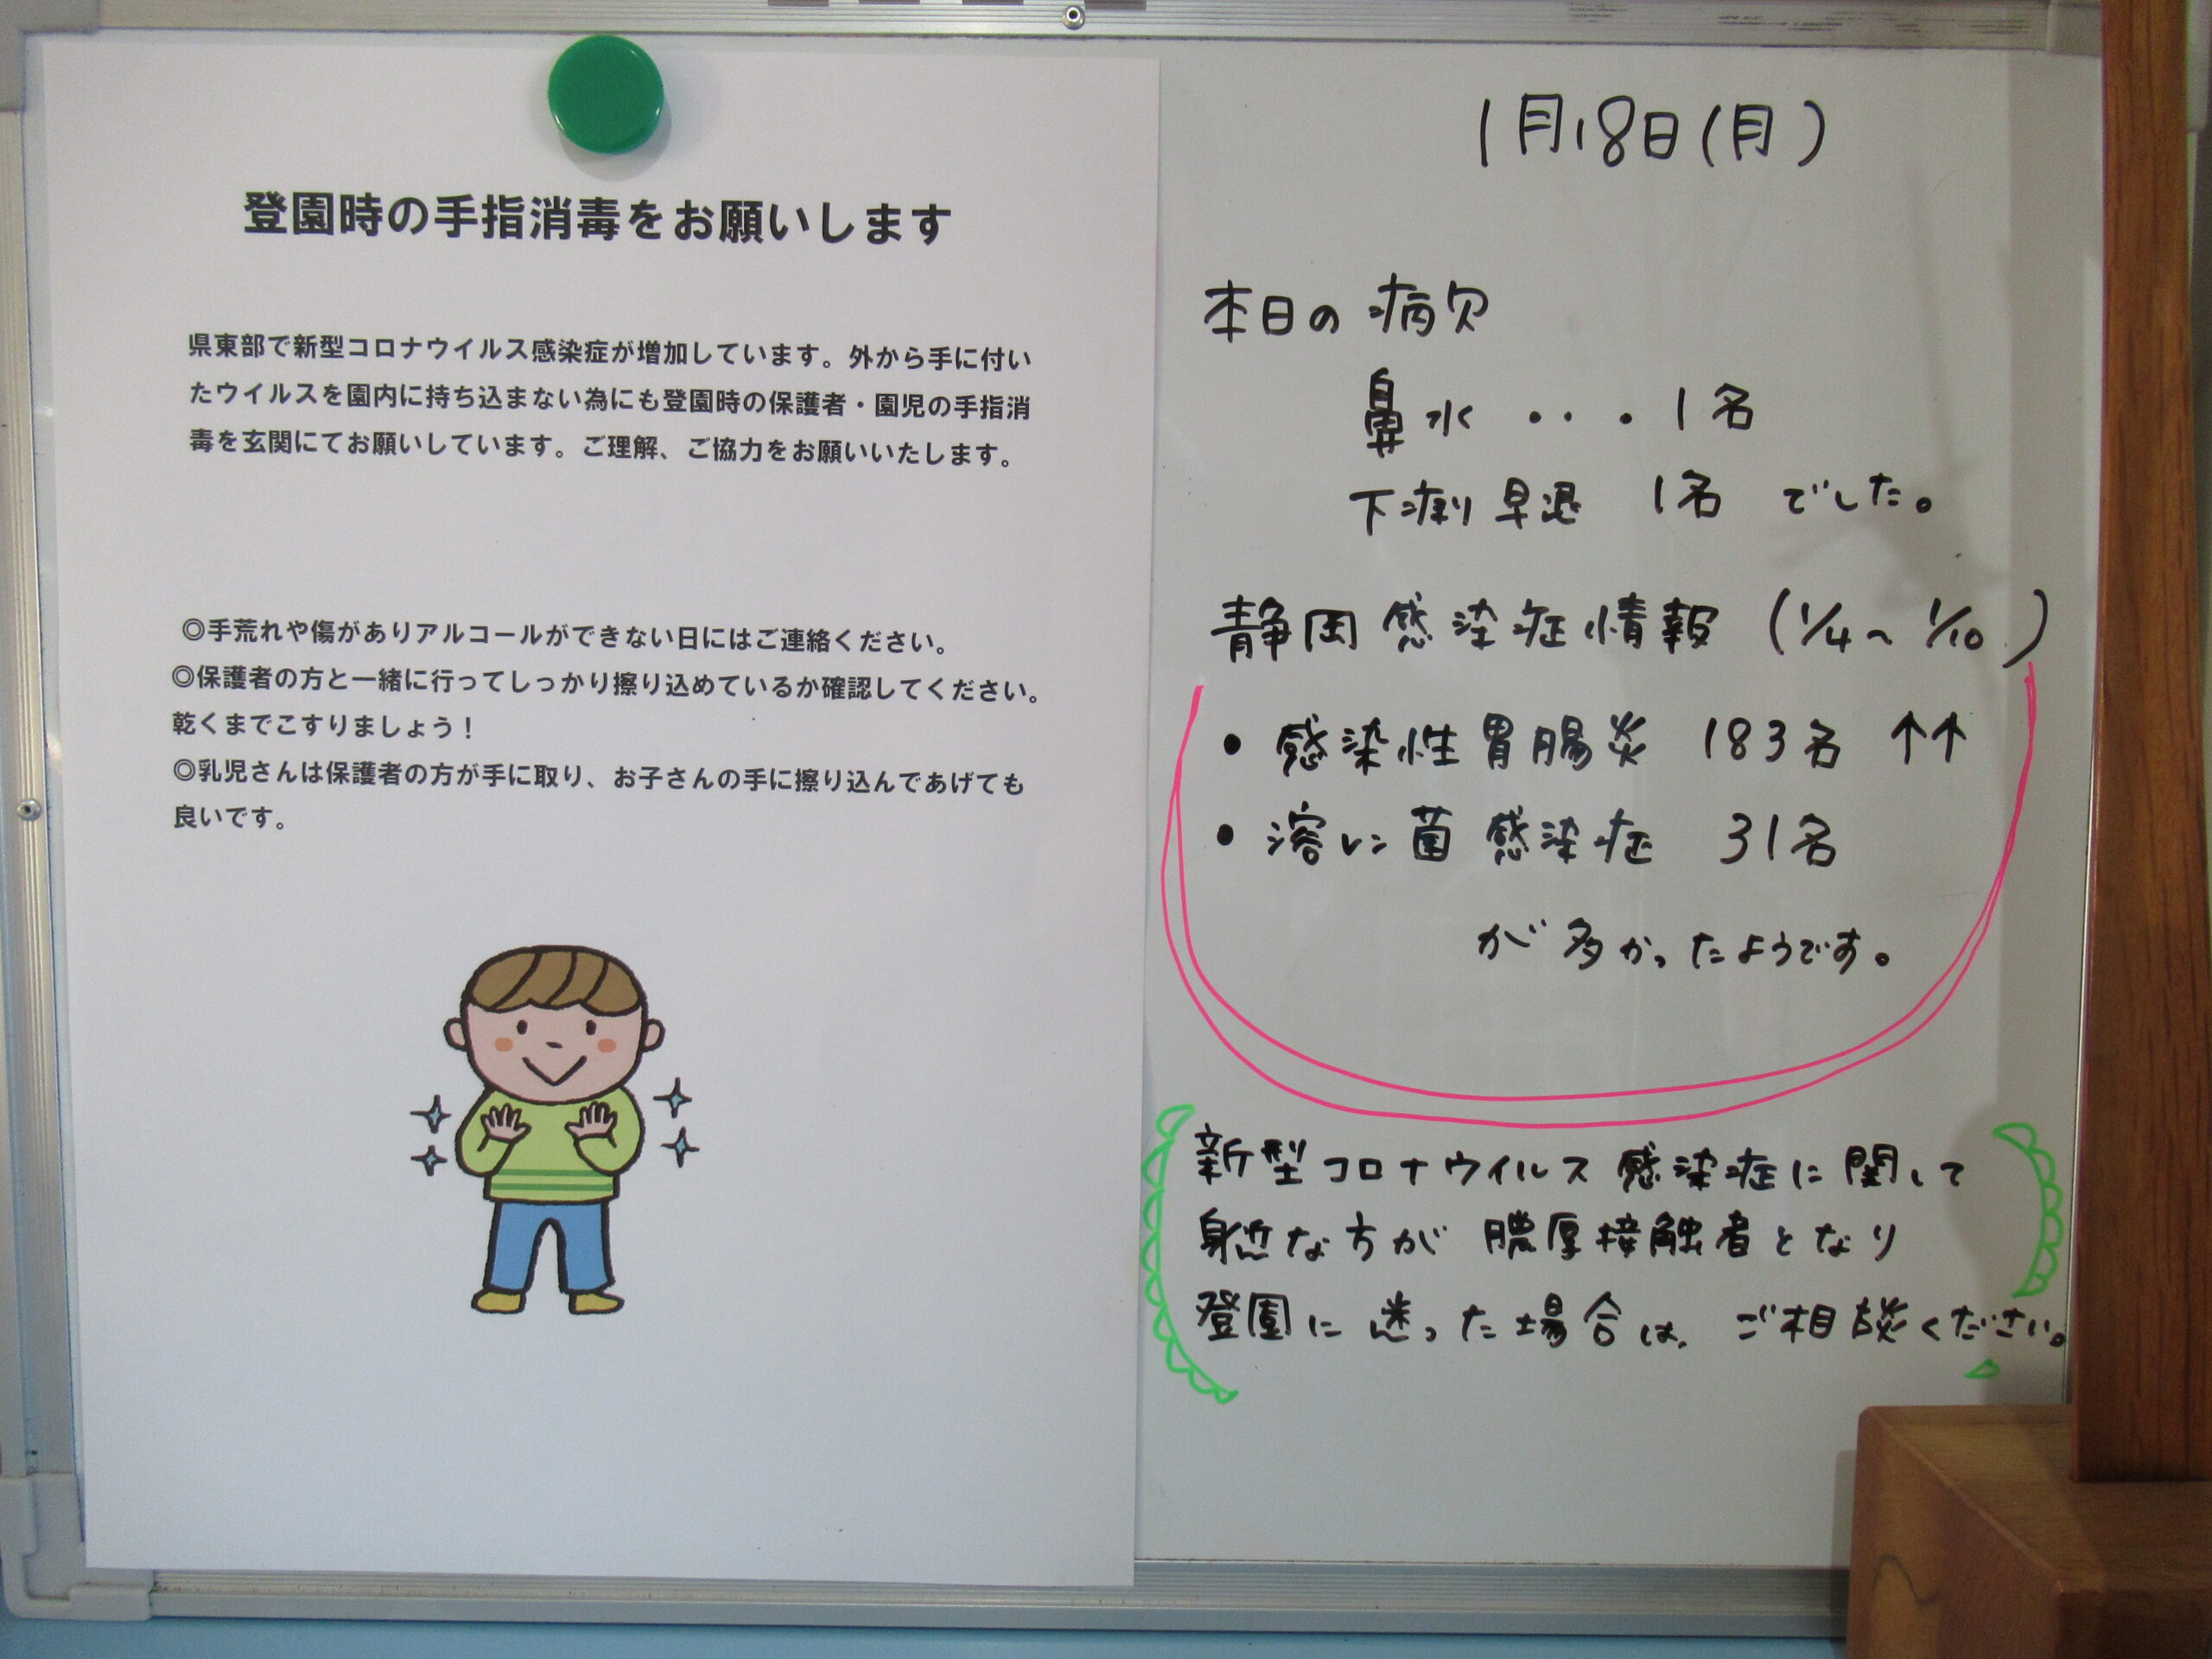 登園時の手指消毒をお願いします
県東部で新型コロナウイルス感染症が増加しています。外から手に付い
たウイルスを園内に持ち込まない為にも登園時の保護者・園児の手指消
毒を玄関にてお願いしています。ご理解、ご協力をお願いいたします。
◎手荒れや傷がありアルコールができない日にはご連絡ください。
◎保護者の方と一緒に行ってしっかり擦り込めているか確認してください。
乾くまでこすりましょう！
◎乳児さんは保護者の方が手に取り、お子さんの手に擦り込んであげても
良いです。
1月18日(月)
本日の病欠
鼻水・・・1名
下痢早退 1名 でした。
静岡感染症情報 (1/4~1/10)
・感染性胃腸炎 183名 ↑↑
・溶レン菌感染症 31名
が多かったようです。
新型コロナウイルス感染症に関して
身近な方が 濃厚接触者となり
登園に迷った場合は、ご相談ください。